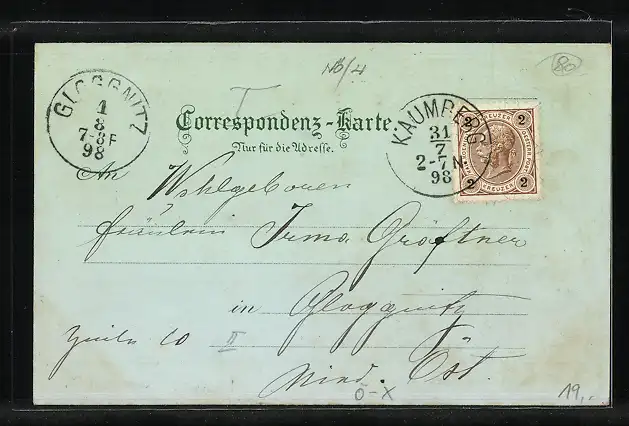 NÖ/4
80
GLOGGNITZ
1
8
7-8F
98
Correspondenz-Karte.
Nur für die Adresse.
KAUMBERG
31
7
2-7N.
98
2 2
KREUZER
KREUZER
2 2
An Wohlgeboren
Fräulein Irma Gröftner
in Gloggnitz
Zeile 10 II
Nied. Öst.
0-X
19,-